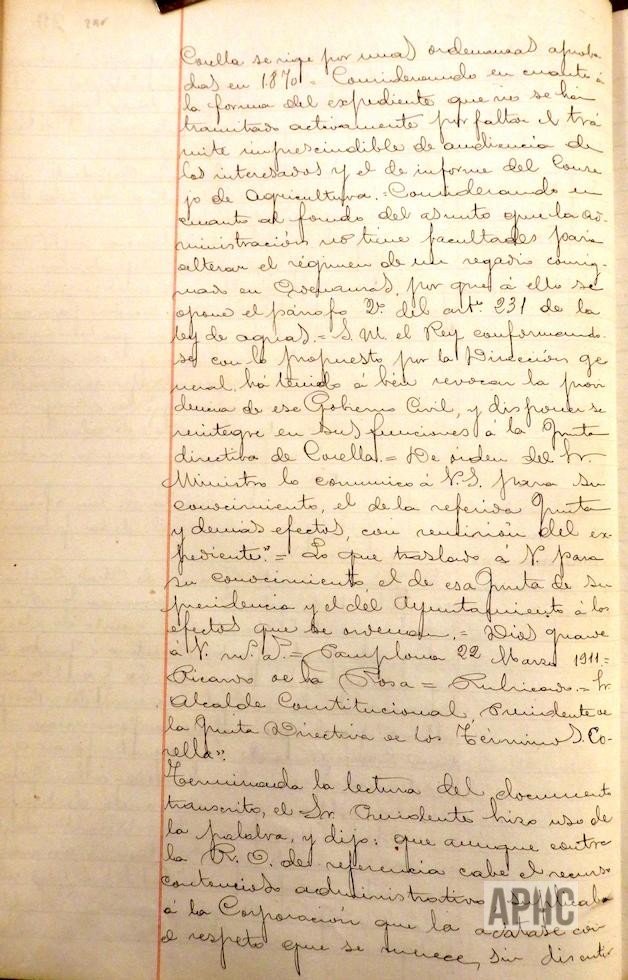 Corella se rige por unas ordenanzas aproba-
das en 1.870 = Considerando en cuanto á
la forma del expediente que no se há
tramitado activamente por faltar el trá
mite imprescindible de audiencia de
los interesados y el de informe del Conse
jo de Agricultura. = Considerando en
cuanto al fondo del asunto que la Ad-
ministración no tiene facultades para
alterar el régimen de un regadio consig-
nado en Ordenanzas, por que á ello se
opone el párrafo 2º. del artº. 231 de la
ley de aguas. = S. M. el Rey conformando-
se con lo propuesto por la Dirección ge
neral há tenido á bien revocar la provi
dencia de ese Gobierno Civil, y disponer se
reintegre en sus funciones á la Junta
directiva de Corella. = De orden del Sr.
Ministro lo comunico á V.S. para su
conocimiento, el de la referida Junta
y demás efectos, con remisión del ex-
pediente." = Lo que traslado á V. para
su conocimiento, el de esa Junta de su
presidencia y el del Ayuntamiento á los
efectos que se ordenan. = Dios guarde
á V. m. a. = Pamplona 22 Marzo 1911 =
Ricardo de la Rosa = Rubricado. = Sr.
Alcalde Constitucional, Presidente de
la Junta Directiva de los Términos. Co-
rella".
Terminada la lectura del documento
transcrito, el Sr. Presidente hizo uso de
la palabra, y dijo: que aunque contra
la R. O. de referencia cabe el recurso
contencioso administrativo, suplicaba
á la Corporación que la acatase con
el respeto que se merece, sin discutir
APHC